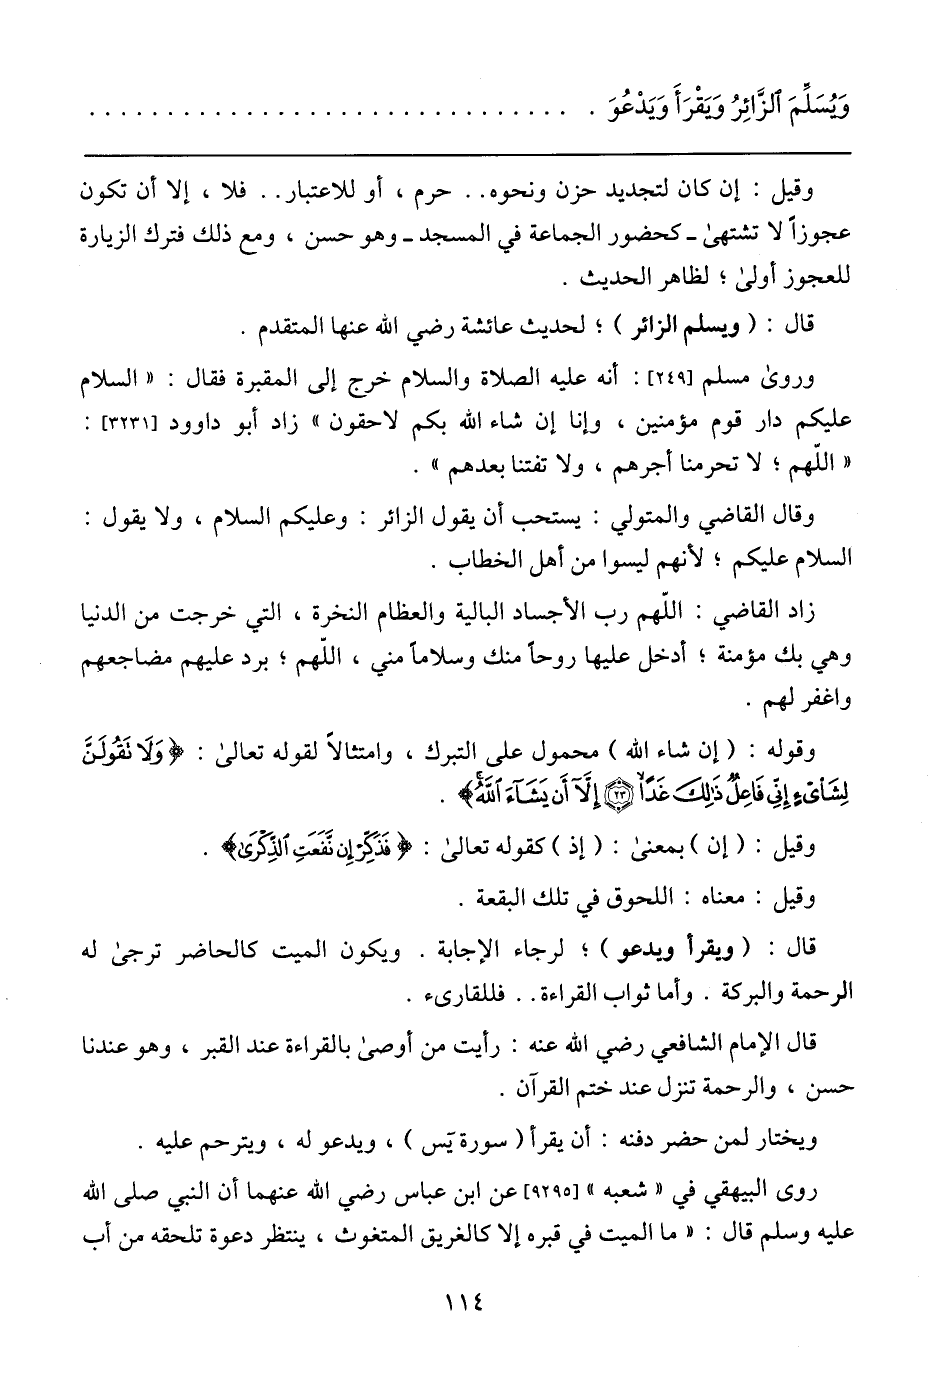 وَيُسَلِّمَ ٱلزَّائِرُ وَيَقْرَأَ وَيَدْعُوَ . . . . . . . . . . . . . . . . . . . . . . . . . . . . . .
وقيل : إن كان لتجديد حزن ونحوه . . حرم ، أو للاعتبار . . فلا ، إلا أن تكون
عجوزاً لا تشتهىٰ ـ كحضور الجماعة في المسجد ـ وهو حسن ، ومع ذلك فترك الزيارة
للعجوز أولىٰ ؛ لظاهر الحديث .
قال : ( ويسلم الزائر ) ؛ لحديث عائشة رضي الله عنها المتقدم .
وروىٰ مسلم [٢٤٩] : أنه عليه الصلاة والسلام خرج إلى المقبرة فقال : « السلام
عليكم دار قوم مؤمنين ، وإنا إن شاء الله بكم لاحقون » زاد أبو داوود [٣٢٣١] :
« اللّهم ؛ لا تحرمنا أجرهم ، ولا تفتنا بعدهم » .
وقال القاضي والمتولي : يستحب أن يقول الزائر : وعليكم السلام ، ولا يقول :
السلام عليكم ؛ لأنهم ليسوا من أهل الخطاب .
زاد القاضي : اللّهم رب الأجساد البالية والعظام النخرة ، التي خرجت من الدنيا
وهي بك مؤمنة ؛ أدخل عليها روحاً منك وسلاماً مني ، اللّهم ؛ برد عليهم مضاجعهم
واغفر لهم .
وقوله : ( إن شاء الله ) محمول على التبرك ، وامتثالاً لقوله تعالىٰ : ﴿وَلَا نَقُولَنَّ
لِشَاْىْءٍ إِنِّى فَاعِلٌ ذَٰلِكَ غَدًا ۝٢٣ إِلَّآ أَن يَشَآءَ ٱللَّهُ﴾ .
وقيل : ( إن ) بمعنىٰ : ( إذ ) كقوله تعالىٰ : ﴿فَذَكِّرْ إِن نَّفَعَتِ ٱلذِّكْرَىٰ﴾ .
وقيل : معناه : اللحوق في تلك البقعة .
قال : ( ويقرأ ويدعو ) ؛ لرجاء الإجابة . ويكون الميت كالحاضر ترجىٰ له
الرحمة والبركة . وأما ثواب القراءة . . فللقارىء .
قال الإمام الشافعي رضي الله عنه : رأيت من أوصىٰ بالقراءة عند القبر ، وهو عندنا
حسن ، والرحمة تنزل عند ختم القرآن .
ويختار لمن حضر دفنه : أن يقرأ ( سورة يٓس ) ، ويدعو له ، ويترحم عليه .
روى البيهقي في « شعبه » [٩٢٩٥] عن ابن عباس رضي الله عنهما أن النبي صلى الله
عليه وسلم قال : « ما الميت في قبره إلا كالغريق المتغوث ، ينتظر دعوة تلحقه من أب
١١٤